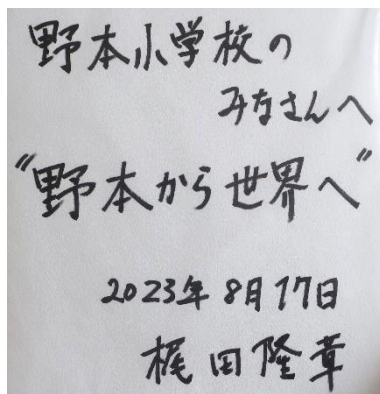 野本小学校の
みなさんへ
"野本から世界へ"
2023年8月17日
梶田隆章